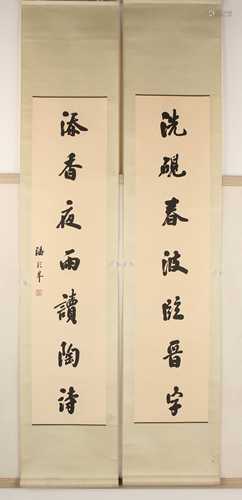 洗硯春波臨晉字
添香夜雨讀陶詩